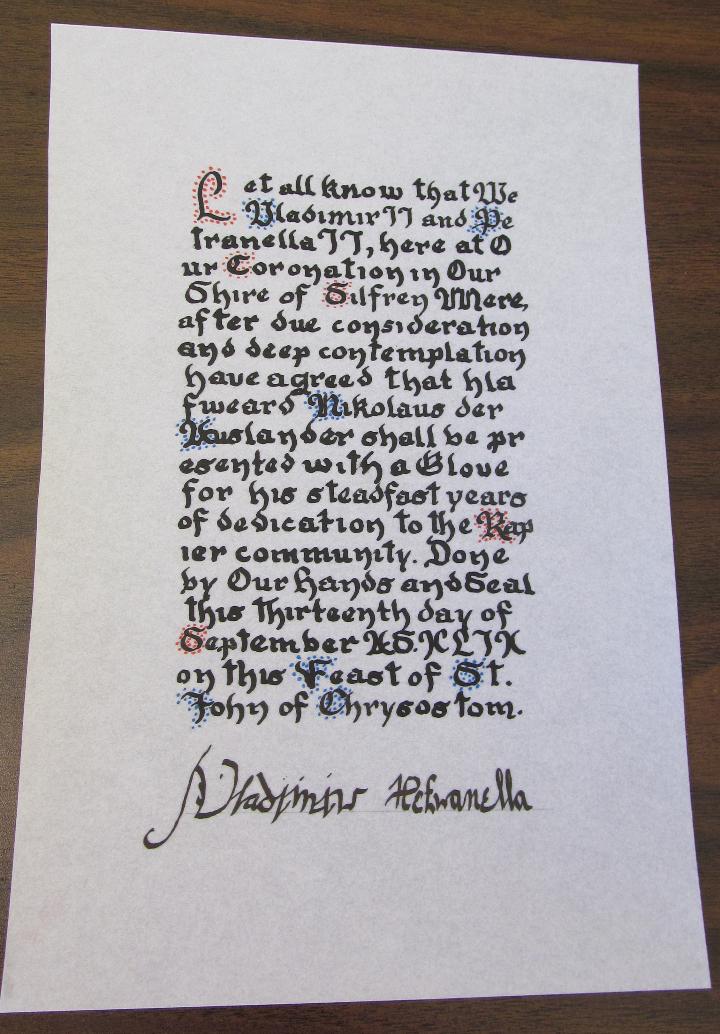 Let all know that We
Vladimir II and Pe
tranella II, here at O
ur Coronation in Our
Shire of Silfren Mere,
after due consideration
and deep contemplation
have agreed that hla
fweard Nikolaus der
Auslander shall be pr
esented with a Glove
for his steadfast years
of dedication to the Rap
ier community. Done
by Our Hands and Seal
this thirteenth day of
September AS XLIX
on this Feast of St.
John of Chrysostom.
Vladimir Petranella